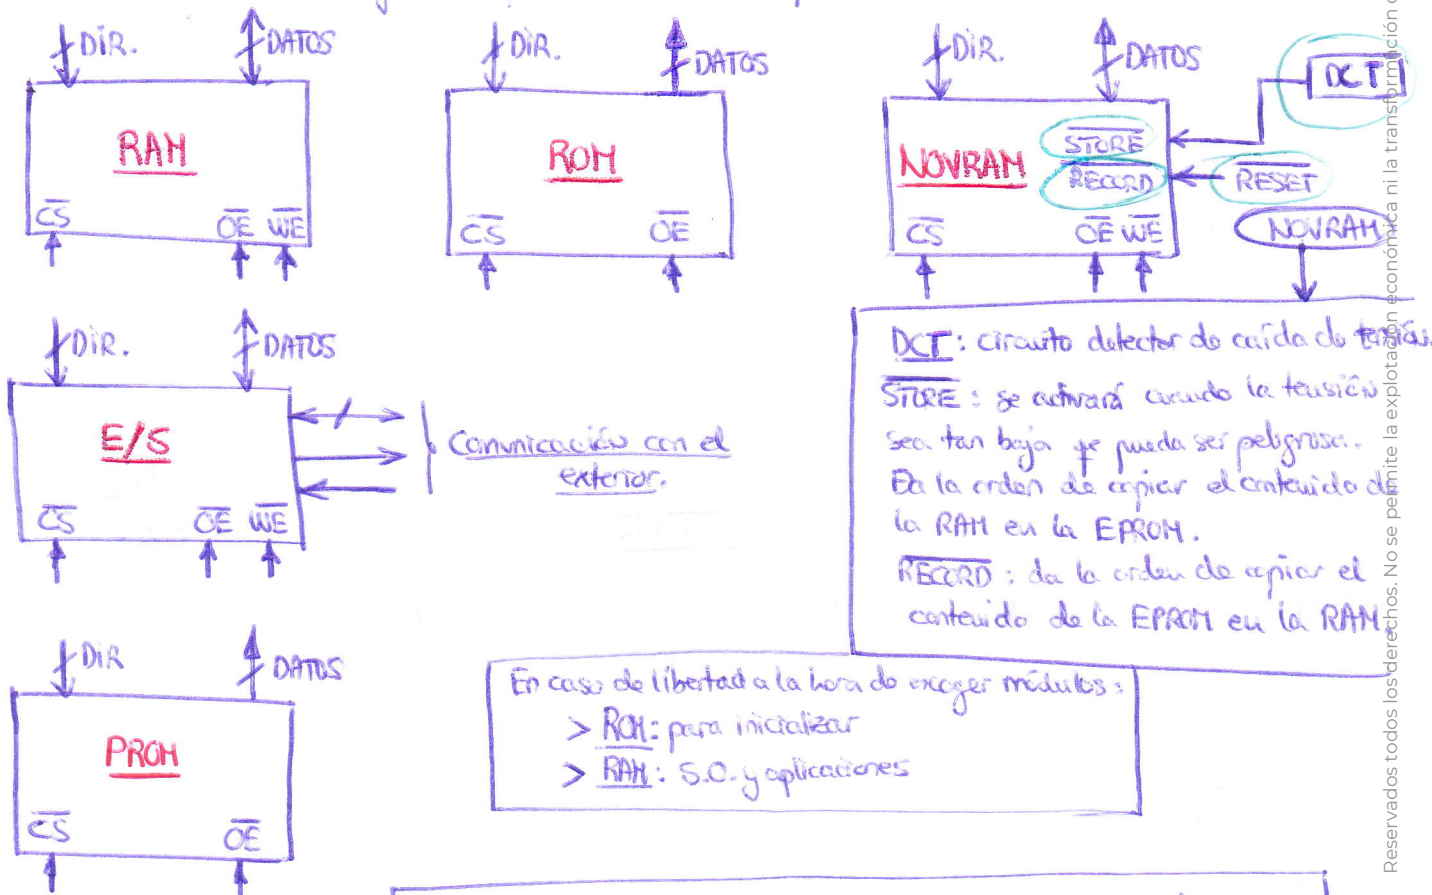 DIR.
DATOS
RAM
C̅S̅
O̅E̅ W̅E̅
DIR.
DATOS
ROM
C̅S̅
O̅E̅
DIR.
DATOS
DCT
NOVRAM
S̅T̅O̅R̅E̅
R̅E̅C̅O̅R̅D̅
R̅E̅S̅E̅T̅
C̅S̅
O̅E̅ W̅E̅
NOVRAM
DCT: circuito detector de caída de tensión.
S̅T̅O̅R̅E̅: se activará cuando la tensión
sea tan baja qe pueda ser peligrosa.
Da la orden de copiar el contenido de
la RAM en la EPROM.
R̅E̅C̅O̅R̅D̅: da la orden de copiar el
contenido de la EPROM en la RAM.
DIR.
DATOS
E/S
C̅S̅
O̅E̅ W̅E̅
Comunicación con el
exterior.
DIR
DATOS
PROM
C̅S̅
O̅E̅
En caso de libertad a la hora de escoger módulos:
> ROM: para inicializar
> RAM: S.O. y aplicaciones
Reservados todos los derechos. No se permite la explotación económica ni la transformación